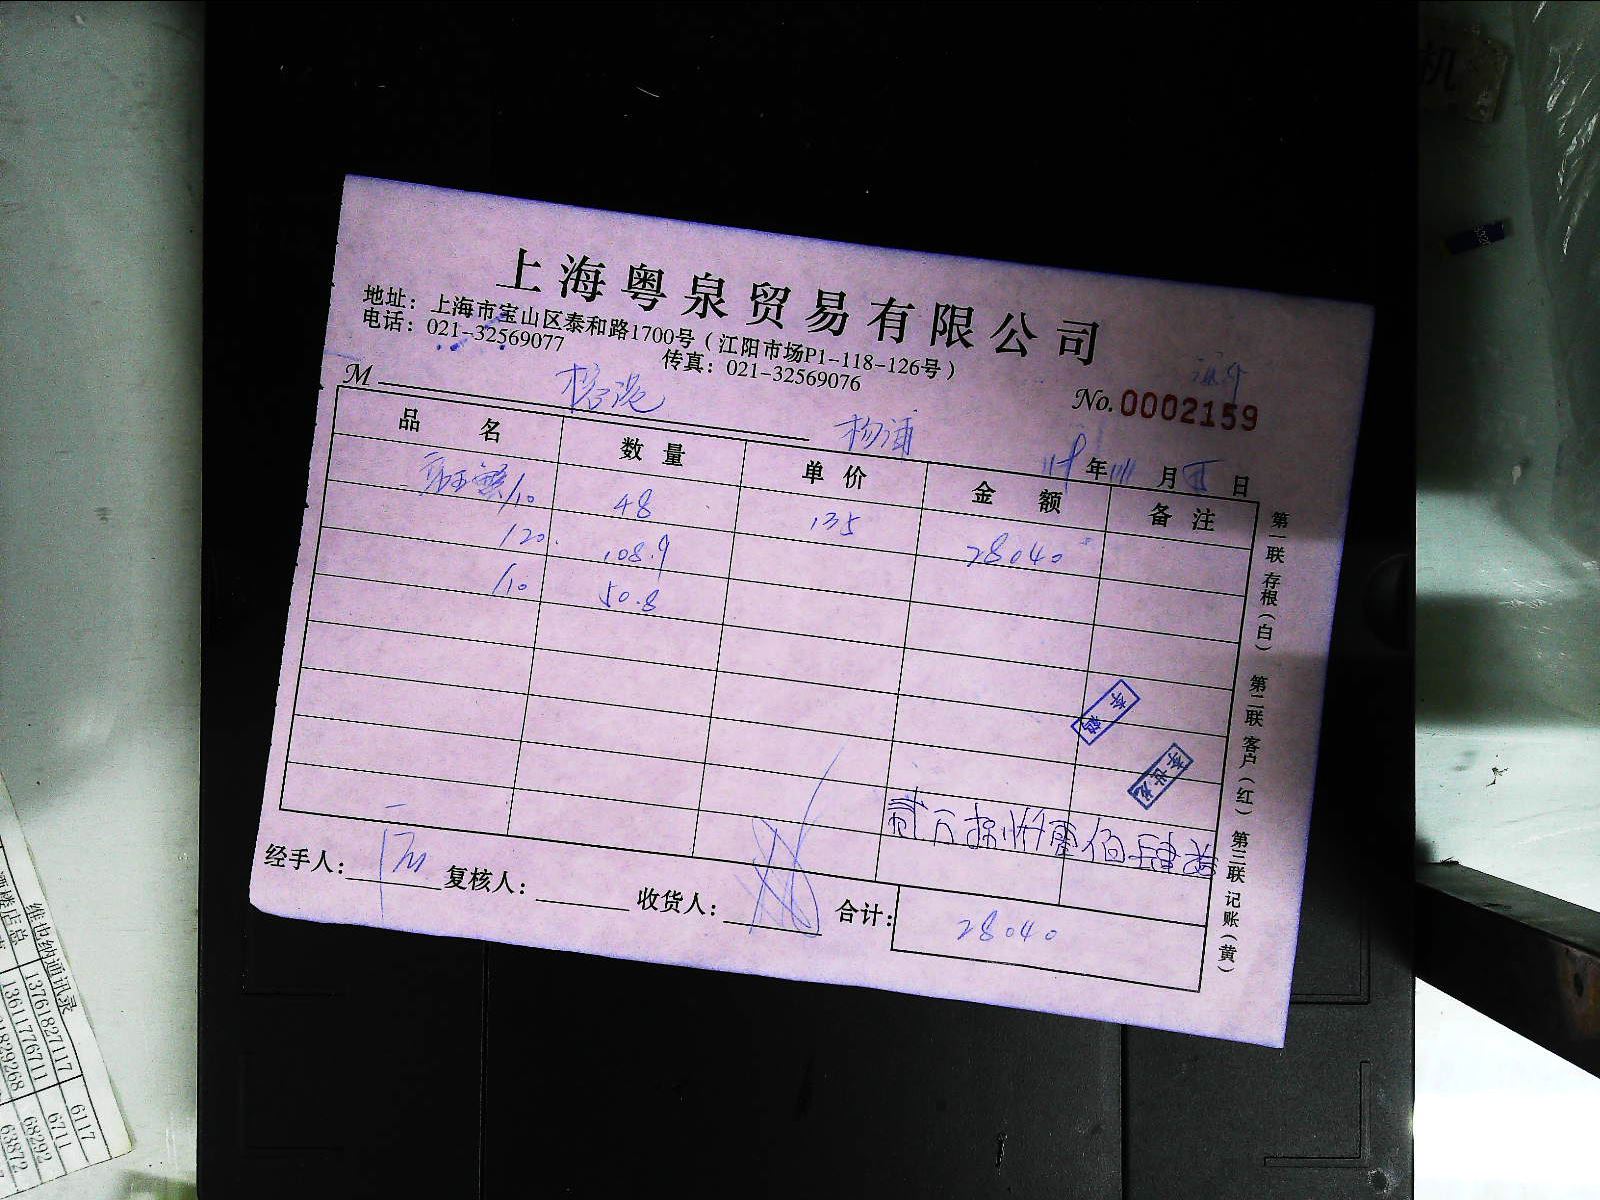 上海粤泉贸易有限公司
地址：上海市宝山区泰和路1700号（江阳市场P1-118-126号）
电话：021-32569077 传真：021-32569076
No.0002159
M
杨浦
年 月 日
品名 数量 单价 金额 备注
/10 48 135 28040
120. 108.9
/10 50.8
第一联 存根（白） 第二联 客户（红） 第三联 记账（黄）
贰万捌仟零佰肆拾
经手人： 复核人： 收货人： 合计： 28040
机
维也纳通讯录
酒楼店总
13761827117 6117
13611776711 6711
68292
63872